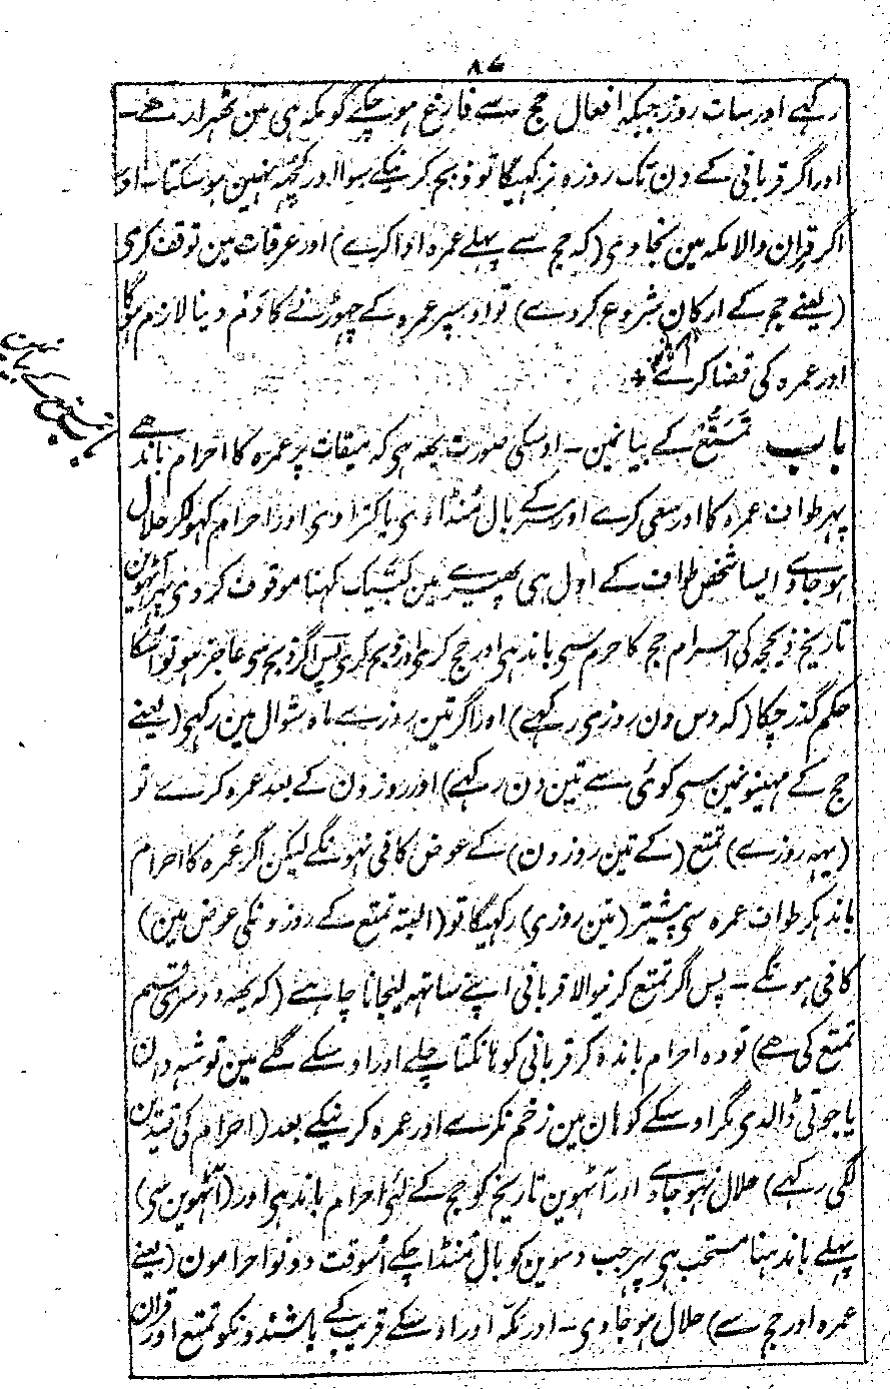 ۸۷
رکہے اور سات روز جبکہ افعال حج سے فارغ ہو چکے گو مکہ ہی مین ٹھہرا رہے۔
اور اگر قربانی کے دن تک روزہ نرکہیگا تو ذبح کرنیکے سوا اور کچھہ نہین ہو سکتا۔ او
اگر قران والا مکہ مین نجاوی (کہ حج سے پہلے عمرہ ادا کرے) اور عرفات مین توقف کری
(یعنے حج کے ارکان شروع کردے) تو اوسپر عمرہ کے چھوڑنے کا دَم دینا لازم ہوگا
اور عمرہ کی قضا کرے
باب تَمَتُّع کے بیانمین۔ اوسکی صورت یہہ ہی کہ میقات پر عمرہ کا احرام باندھے
پہر طواف عمرہ کا اور سعی کرے اور سر کے بال مُنڈاوی یا کتراوی اور احرام کہولکر حلال
ہو جاوے ایسا شخص طواف کے اول ہی پھیرے مین لبّیک کہنا موقوف کردی پہر آٹہوین
تاریخ ذیحجہ کی احرام حج کا حرم سی باندہی اور حج کری اور ذبح کری پس اگر ذبح سی عاجز ہو تو اُسکا
حکم گذر چکا (کہ دس دن روزی رکہے) اور اگر تین روزے ماہ شوال مین رکہی (یعنے
حج کے مہینونمین سی کوئی سے تین دن رکہے) اور روزون کے بعد عمرہ کرے تو
(یہہ روزے) تمتع (کے تین روزون) کے عوض کافی نہونگے لیکن اگر عمرہ کا احرام
باندہکر طواف عمرہ سی پیشتر (تین روزی) رکہیگا تو (البتہ تمتع کے روزونکی عوض مین)
کافی ہونگے۔ پس اگر تمتع کرنیوالا قربانی اپنے ساتہہ لیجانا چاہے (کہ یہہ دوسری قسم
تمتع کی ہے) تو وہ احرام باندہ کر قربانی کو ہانکتا چلے اور اوسکے گلے مین توشہ دان
یا جوتی ڈالدی مگر اوسکے کوہان مین زخم نکرے اور عمرہ کرنیکے بعد (احرام کی قیدین
لگی رکہے) حلال نہوجاوے اور آٹہوین تاریخ کو حج کے لئی احرام باندہی اور (آٹہوین سی)
پہلے باندہنا مستحب ہی پہر جب دسوین کو بال مُنڈا چکے اُسوقت دونوا حرامون (یعنے
عمرہ اور حج سے) حلال ہو جاوی۔ اور مکہ اور اوسکے قریب کے باشندونکو تمتع اور قران